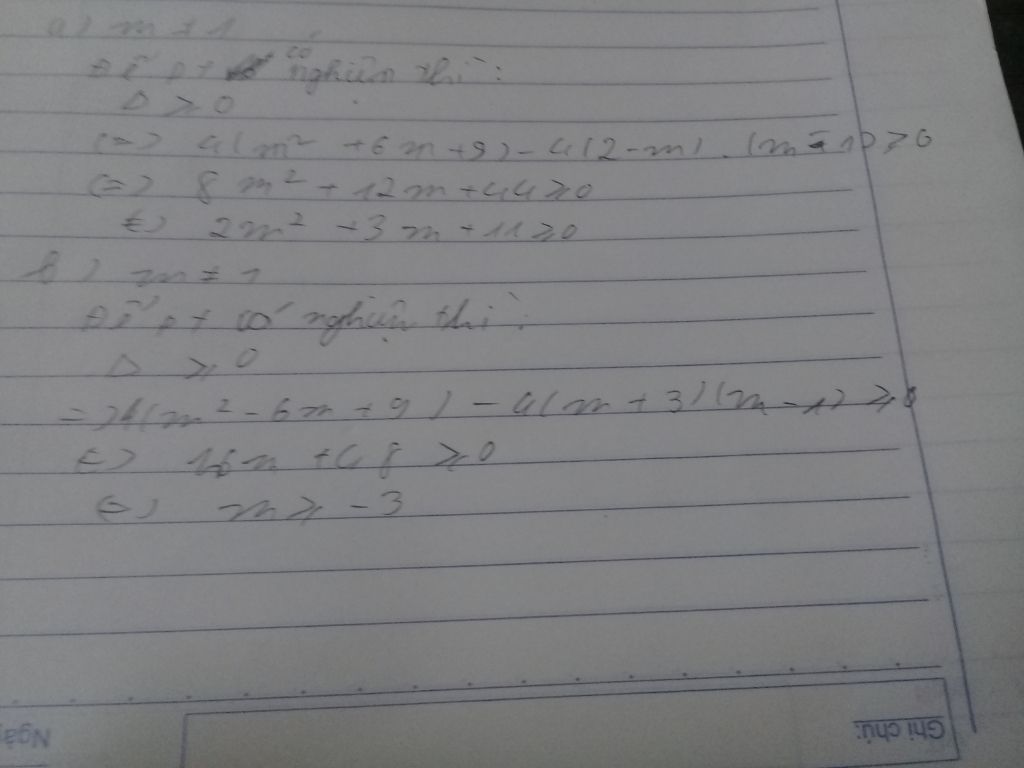 a) m ≠ 1
Để pt có nghiệm thì:
Δ ≥ 0
(=) 4(m² + 6m + 9) - 4(2 - m). (m - 1) ≥ 0
(=) 8m² + 12m + 44 ≥ 0
(=) 2m² + 3m + 11 ≥ 0
b) m ≠ 1
Để pt có nghiệm thì:
Δ ≥ 0
=) 4(m² - 6m + 9) - 4(m + 3)(m - 1) ≥ 0
(=) m + 48 ≥ 0
(=) m ≥ -3
Ghi chú:
Ngày